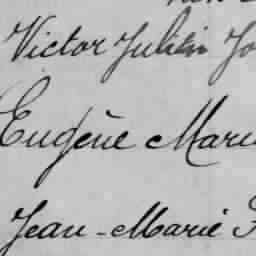 Victor Julien Jo
Eugène Marie
Jean-Marie F